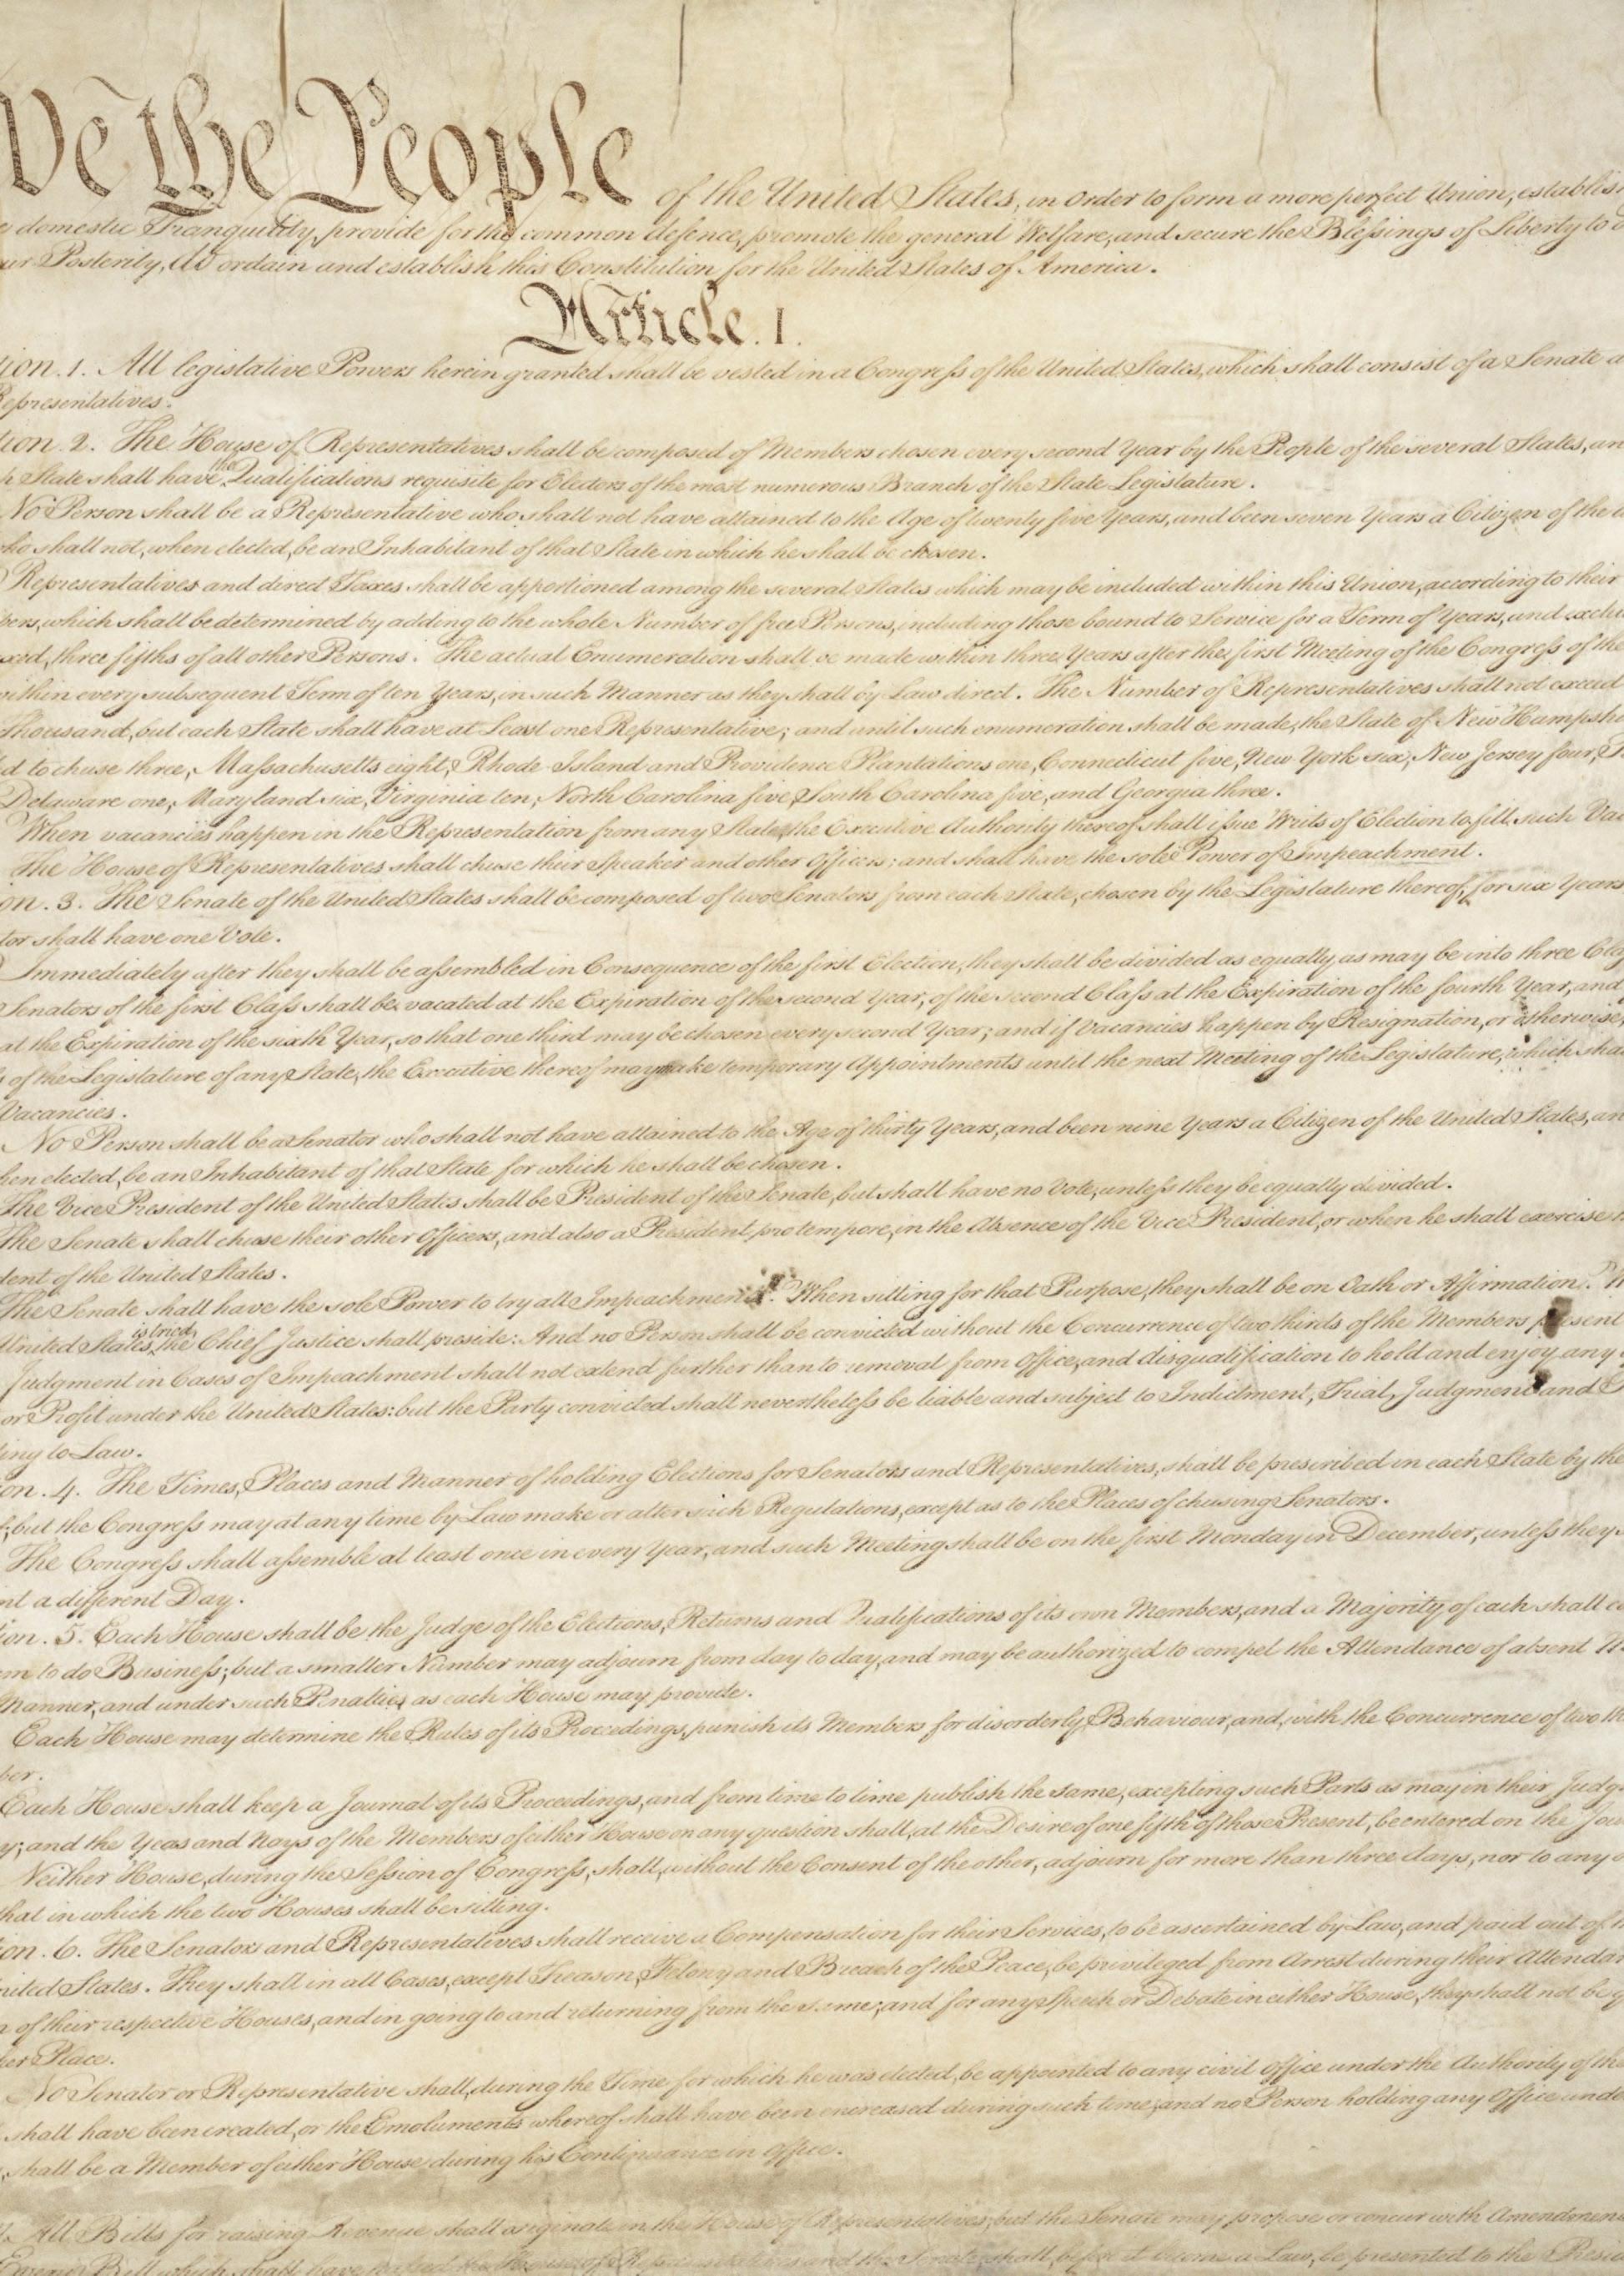 We the People of the United States, in Order to form a more perfect Union, establis
e domestic Tranquility, provide for the common defence, promote the general Welfare, and secure the Blessings of Liberty to o
ur Posterity, do ordain and establish this Constitution for the United States of America.
Article. I.
tion. 1. All legislative Powers herein granted shall be vested in a Congress of the United States, which shall consist of a Senate a
Representatives.
tion. 2. The House of Representatives shall be composed of Members chosen every second Year by the People of the several States, an
h State shall have the Qualifications requisite for Electors of the most numerous Branch of the State Legislature.
No Person shall be a Representative who shall not have attained to the Age of twenty five Years, and been seven Years a Citizen of the U
who shall not, when elected, be an Inhabitant of that State in which he shall be chosen.
Representatives and direct Taxes shall be apportioned among the several States which may be included within this Union, according to their
bers, which shall be determined by adding to the whole Number of free Persons, including those bound to Service for a Term of Years, and exclu
xed, three fifths of all other Persons. The actual Enumeration shall be made within three Years after the first Meeting of the Congress of the
within every subsequent Term of ten Years, in such Manner as they shall by Law direct. The Number of Representatives shall not exceed
Thousand, but each State shall have at Least one Representative; and until such enumeration shall be made, the State of New Hampshi
ed to chuse three, Massachusetts eight, Rhode-Island and Providence Plantations one, Connecticut five, New-York six, New Jersey four,
Delaware one, Maryland six, Virginia ten, North Carolina five, South Carolina five, and Georgia three.
When vacancies happen in the Representation from any State, the Executive Authority thereof shall issue Writs of Election to fill such Vac
The House of Representatives shall chuse their Speaker and other Officers; and shall have the sole Power of Impeachment.
on. 3. The Senate of the United States shall be composed of two Senators from each State, chosen by the Legislature thereof, for six Years
tor shall have one Vote.
Immediately after they shall be assembled in Consequence of the first Election, they shall be divided as equally as may be into three Clas
Senators of the first Class shall be vacated at the Expiration of the second Year, of the second Class at the Expiration of the fourth Year, and
at the Expiration of the sixth Year, so that one third may be chosen every second Year; and if Vacancies happen by Resignation, or otherwise,
s of the Legislature of any State, the Executive thereof may make temporary Appointments until the next Meeting of the Legislature, which shal
Vacancies.
No Person shall be a Senator who shall not have attained to the Age of thirty Years, and been nine Years a Citizen of the United States, an
hen elected, be an Inhabitant of that State for which he shall be chosen.
The Vice President of the United States shall be President of the Senate, but shall have no Vote, unless they be equally divided.
The Senate shall chuse their other Officers, and also a President pro tempore, in the Absence of the Vice President, or when he shall exercise
dent of the United States.
The Senate shall have the sole Power to try all Impeachments. When sitting for that Purpose, they shall be on Oath or Affirmation. W
United States is tried, the Chief Justice shall preside: And no Person shall be convicted without the Concurrence of two thirds of the Members present
Judgment in Cases of Impeachment shall not extend further than to removal from Office, and disqualification to hold and enjoy any
or Profit under the United States: but the Party convicted shall nevertheless be liable and subject to Indictment, Trial, Judgment and
ding to Law.
on. 4. The Times, Places and Manner of holding Elections for Senators and Representatives, shall be prescribed in each State by the
f; but the Congress may at any time by Law make or alter such Regulations, except as to the Places of chusing Senators.
The Congress shall assemble at least once in every Year, and such Meeting shall be on the first Monday in December, unless they
nt a different Day.
ion. 5. Each House shall be the Judge of the Elections, Returns and Qualifications of its own Members, and a Majority of each shall co
um to do Business; but a smaller Number may adjourn from day to day, and may be authorized to compel the Attendance of absent M
Manner, and under such Penalties as each House may provide.
Each House may determine the Rules of its Proceedings, punish its Members for disorderly Behaviour, and, with the Concurrence of two th
ber.
Each House shall keep a Journal of its Proceedings, and from time to time publish the same, excepting such Parts as may in their Judg
y; and the Yeas and Nays of the Members of either House on any question shall, at the Desire of one fifth of those Present, be entered on the Jou
Neither House, during the Session of Congress, shall, without the Consent of the other, adjourn for more than three days, nor to any o
that in which the two Houses shall be sitting.
ion. 6. The Senators and Representatives shall receive a Compensation for their Services, to be ascertained by Law, and paid out of
nited States. They shall in all Cases, except Treason, Felony and Breach of the Peace, be privileged from Arrest during their Attendan
n of their respective Houses, and in going to and returning from the same; and for any Speech or Debate in either House, they shall not be q
her Place.
No Senator or Representative shall, during the Time for which he was elected, be appointed to any civil Office under the Authority of the
shall have been created, or the Emoluments whereof shall have been encreased during such time; and no Person holding any Office unde
shall be a Member of either House during his Continuance in Office.
All Bills for raising Revenue shall originate in the House of Representatives; but the Senate may propose or concur with Amendmen
Every Bill which shall have passed the House of Representatives and the Senate, shall, before it become a Law, be presented to the Presid